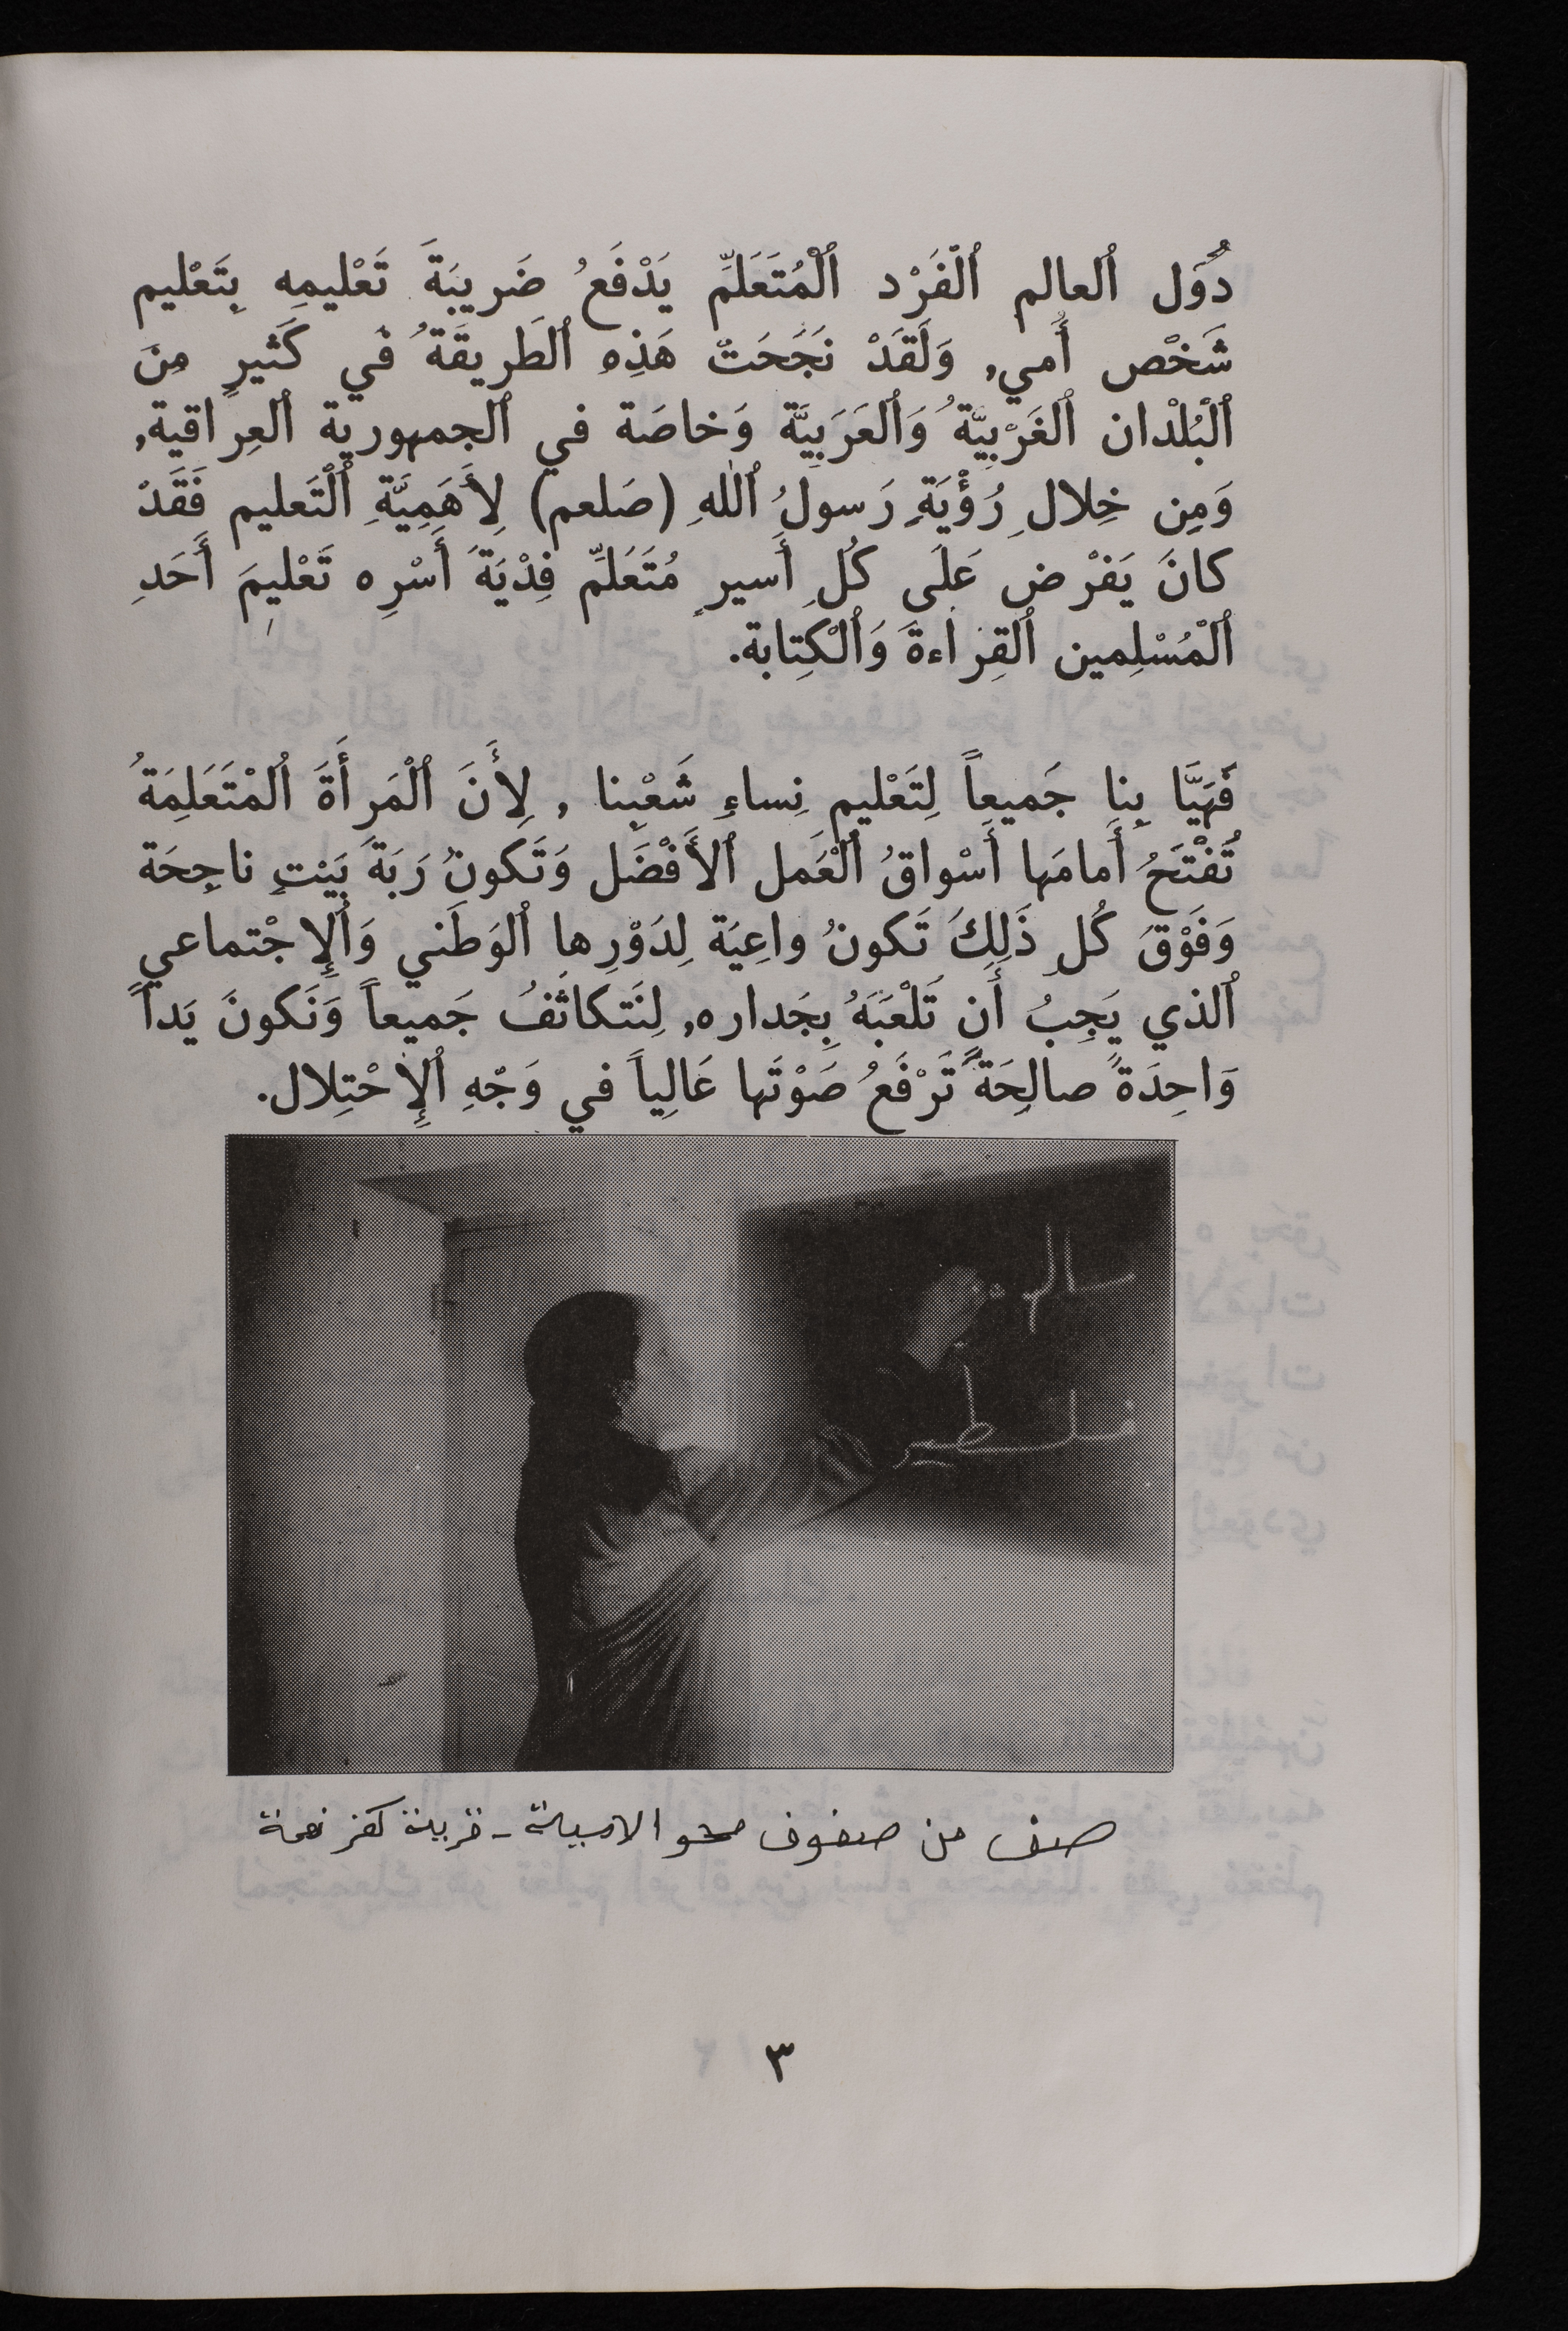 دُوَل ٱلعالم ٱلْفَرْد ٱلْمُتَعَلِّم يَدْفَعُ ضَريبَةَ تَعْليمِه بِتَعْليم
شَخْص أُمي, وَلَقَدْ نَجَحَتْ هَذِهِ ٱلطَريقَةُ في كَثيرٍ مِنَ
ٱلْبُلْدان ٱلغَرْبِيَّةُ وَٱلعَرَبِيَّة وَخاصَة في ٱلجمهورية ٱلعِراقية,
وَمِن خِلالِ رُؤْيَةِ رَسولُ ٱللهِ (صَلعم) لِأَهَمِيَّةِ ٱلْتَعليم فَقَدْ
كانَ يَفْرْض عَلَى كُلِ أَسيرٍ مُتَعَلِّم فِدْيَةَ أَسْرِه تَعْليمَ أَحَدِ
ٱلْمُسْلِمين ٱلقِراءةَ وَٱلْكِتابة.
فَهَيَّا بِنا جَميعاً لِتَعْليمِ نِساءِ شَعْبِنا , لِأَنَ ٱلْمَرأَةَ ٱلمْتَعَلِمَةُ
تُفْتَحُ أَمامَها أَسْواقُ ٱلْعَمل ٱلأَفْضَل وَتَكونُ رَبَةَ بَيْتٍ ناجِحَة
وَفَوْقَ كُلِ ذَلِكَ تَكونُ واعِيَة لِدَوْرِها ٱلوَطَني وَٱلإِجْتماعي
ٱلذي يَجِبُ أَن تَلْعَبَهُ بِجَداره, لِنَتكاثَفُ جَميعاً وَنَكونَ يَداً
وَاحِدَةً صالِحَةً تَرْفَعُ صَوْتَها عَالِياً في وَجْهِ ٱلإِحْتِلال.
سالم
فلسطين
صف من صفوف محو الامية - قرية كفر نعمة
٣